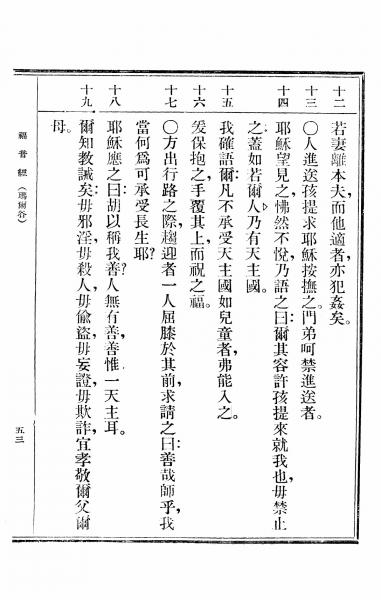 十二 若妻離本夫、而他適者、亦犯姦矣。
十三 〇人進送孩提、求耶穌按撫之、門弟呵禁進送者。
十四 耶穌望見之、怫然不悅、乃語之曰：爾其容許孩提來就我也、毋禁止
之、蓋如若爾人、乃有天主國。
十五 我確語爾、凡不承受天主國如兒童者、弗能入之。
十六 爰保抱之、手覆其上、而祝之福。
十七 〇方出行路之際、趨迎者一人、屈膝於其前、求請之曰：善哉師乎、我
當何爲、可承受長生耶？
十八 耶穌應之曰：胡以稱我善？人無有善、善惟一天主耳。
十九 爾知教誡矣、毋邪淫、毋殺人、毋偸盜、毋妄證、毋欺詐、宜孝敬爾父爾
母。
福音經（瑪爾谷）
五三